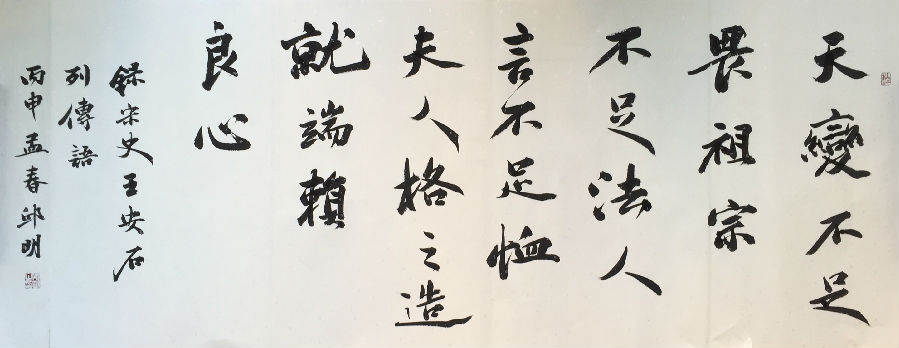 天變不足
畏祖宗
不足法人
言不足恤
夫人格之造
就端賴
良心
錄宋史王安石
列傳語
丙申孟春邱明